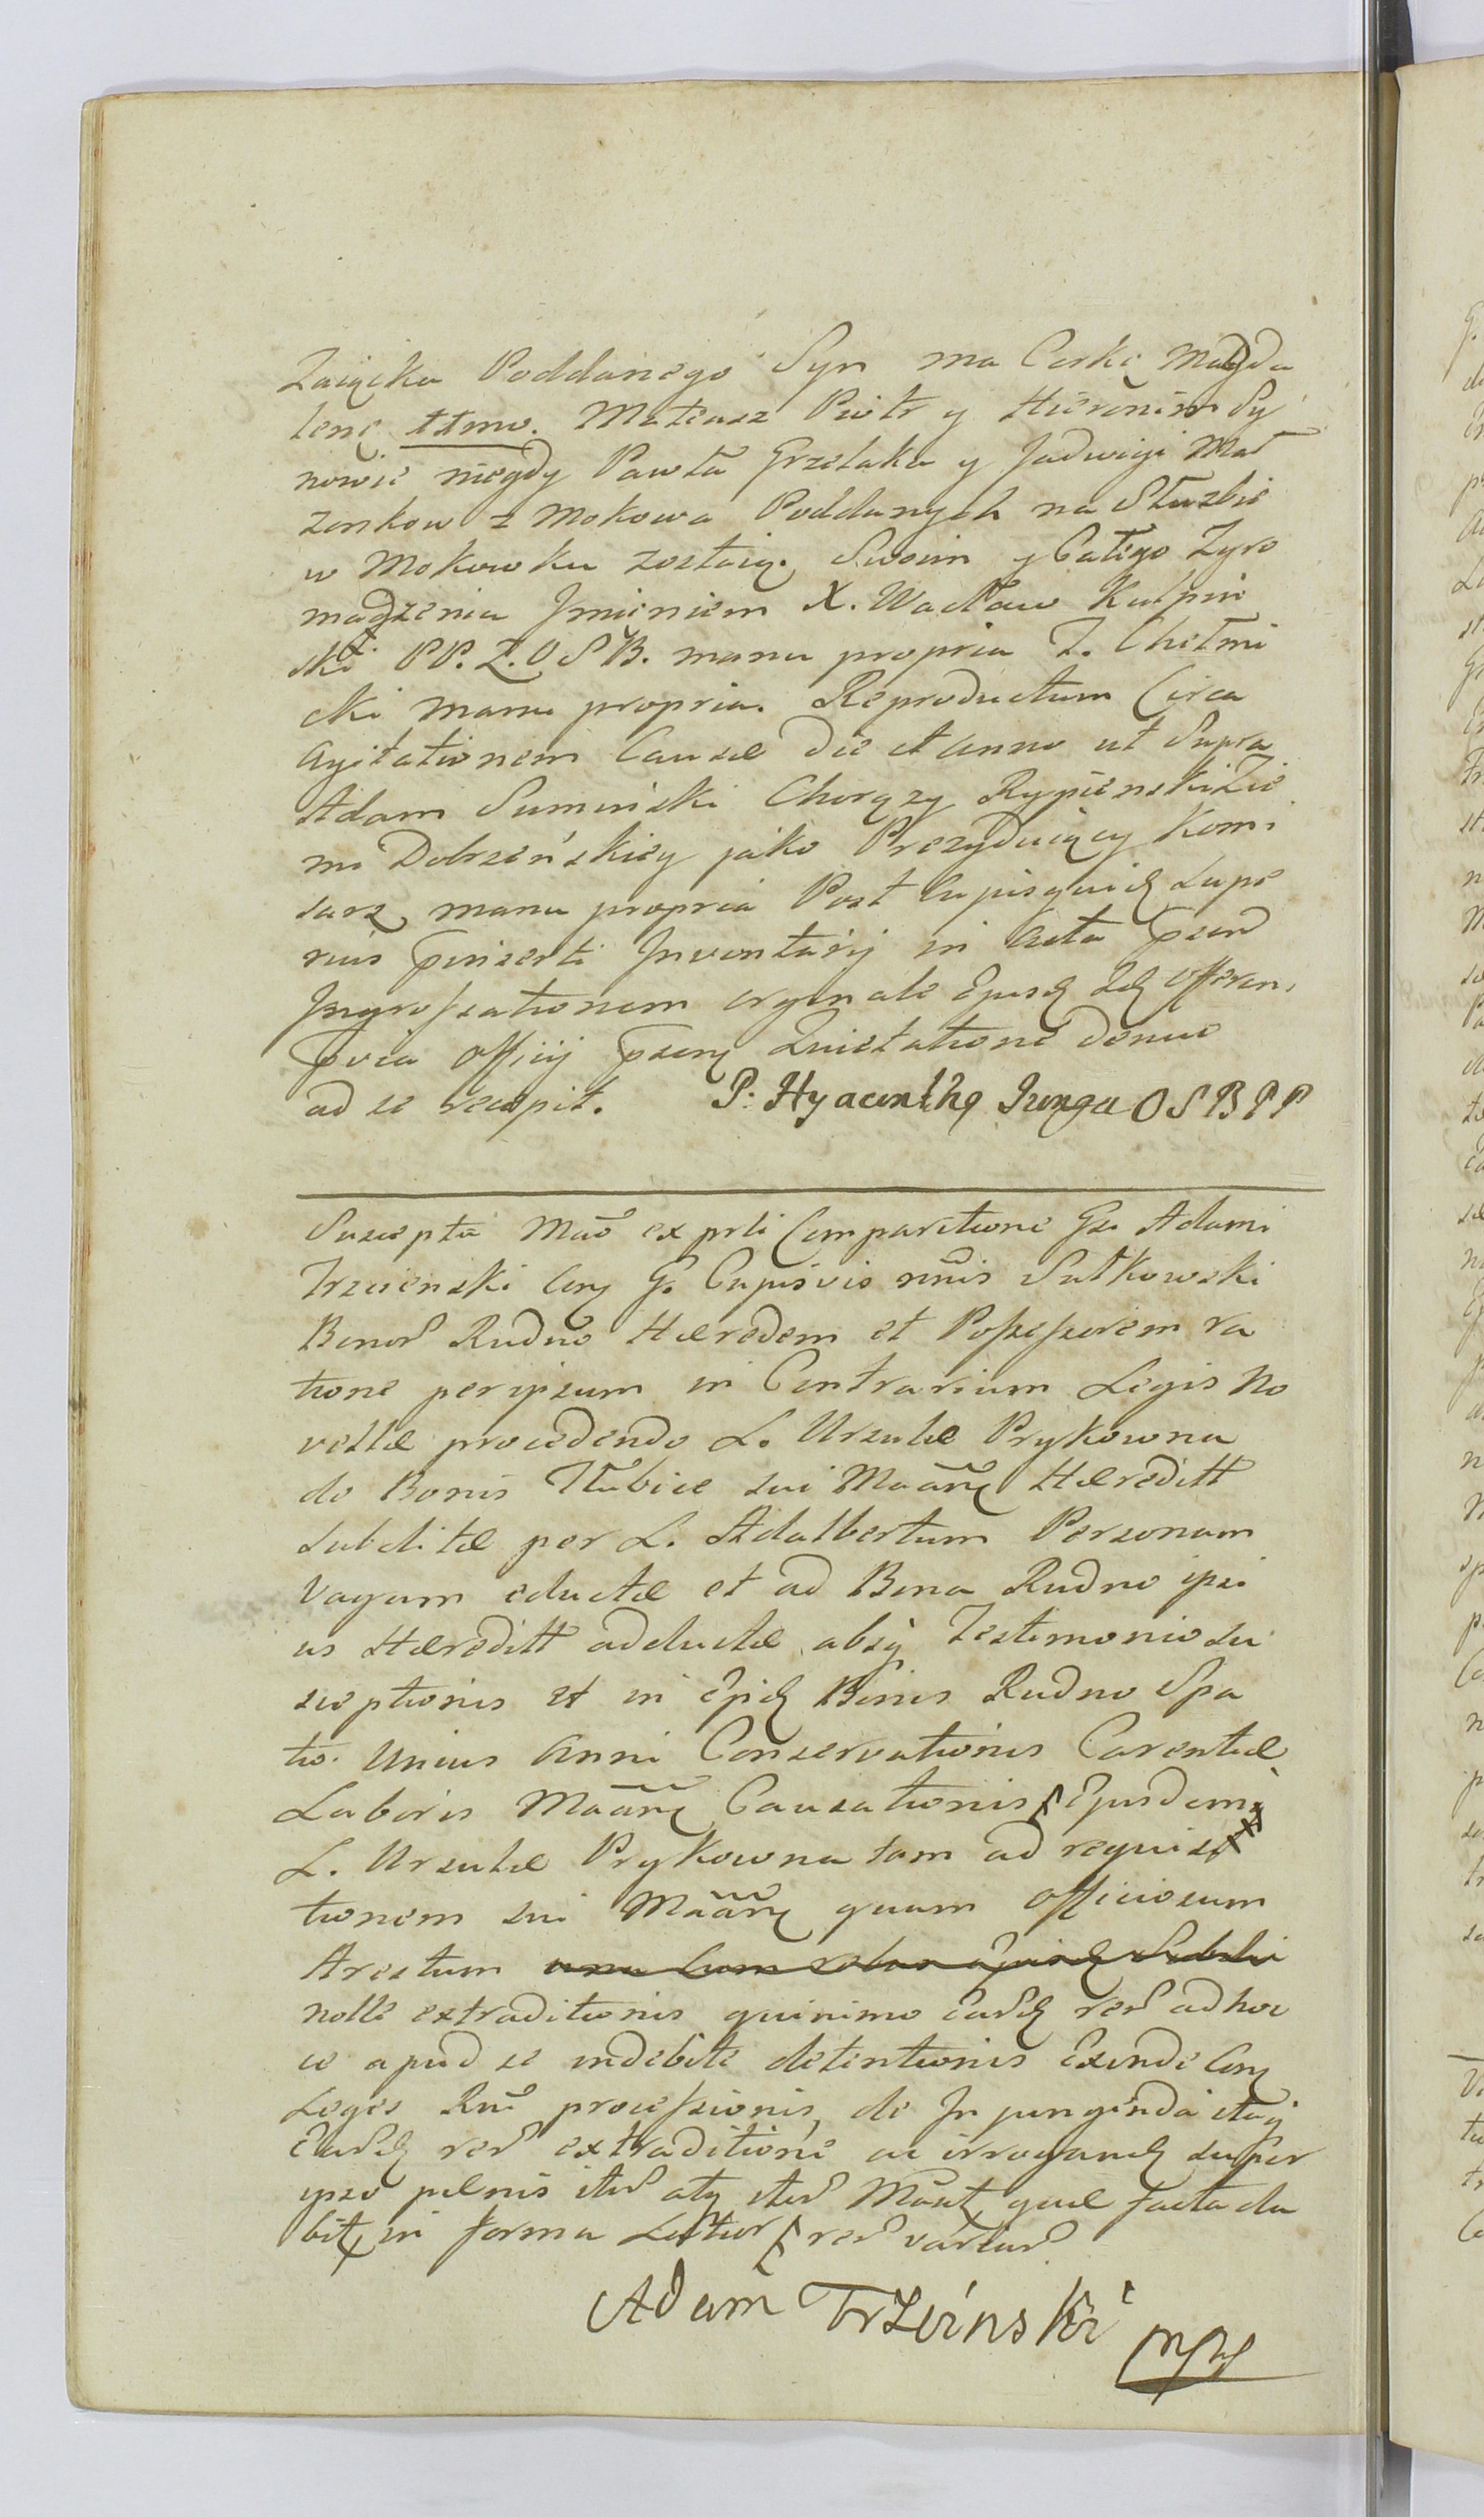 Zaięcka Poddanego Syn ma Corkę Magda
lenę ttmo. Mateusz Piotr y Hieronim Sy
nowie niegdy Pawła Grzelaka y Jadwigi Mał
zonkow z Mokowa Poddanych na Służbie
w Mokowku zostaią. Swoim y Całego Zgro
madzenia Jmieniem X. Wacław Kulpin
ski PP. Z. O S B. manu propria Z. Chełmi
cki manu propria. Reproductum Circa
agitationem Causæ die et anno ut Supra
Adam Sumiński Chorązy Rypienski Zie
mi Dobrzeńskiey jako Prezyduiący Kom.
sarz manu propria Post cujusquid Supe
rius Inserti Jnventarij in Acta
Jngrossationem orginale Offeren.
Officij Quietatione denuo
ad se recepit. P. Hyacinthq Junga O S B P P
Suscepta ex prti Comparitione Gsi Adami
Trzcienski G. Sułkowski
Bonor Rudno Hæredem et Possessorem ra
tione per ipsum in Contrarium Legis No
vellæ procedendo L. Ursulæ Prykowna
de Bonis sui Hæreditt
Subditæ per L. Adalbertum Personam
Vagam eductæ et ad Bona Rudno ipsi
us Hæreditt adductæ absq Testimonio su
sceptionis et in Bonis Rudno Spa
tio Unius Anni Conservationis Carentiæ
Laboris Causationis Ejusdemq
L. Ursulæ Prykowna tam ad requisi
tionem sui quam Officiosum
Arestum
nolle extraditionis quinimo ad hoc
ce apud se indebite detentionis Exinde
Leges processionis, de Jnjungenda itaq
extraditione ac irrogand super
ipso pœnis atq quæ facta da
bit in forma
Adam Trzcinski mp